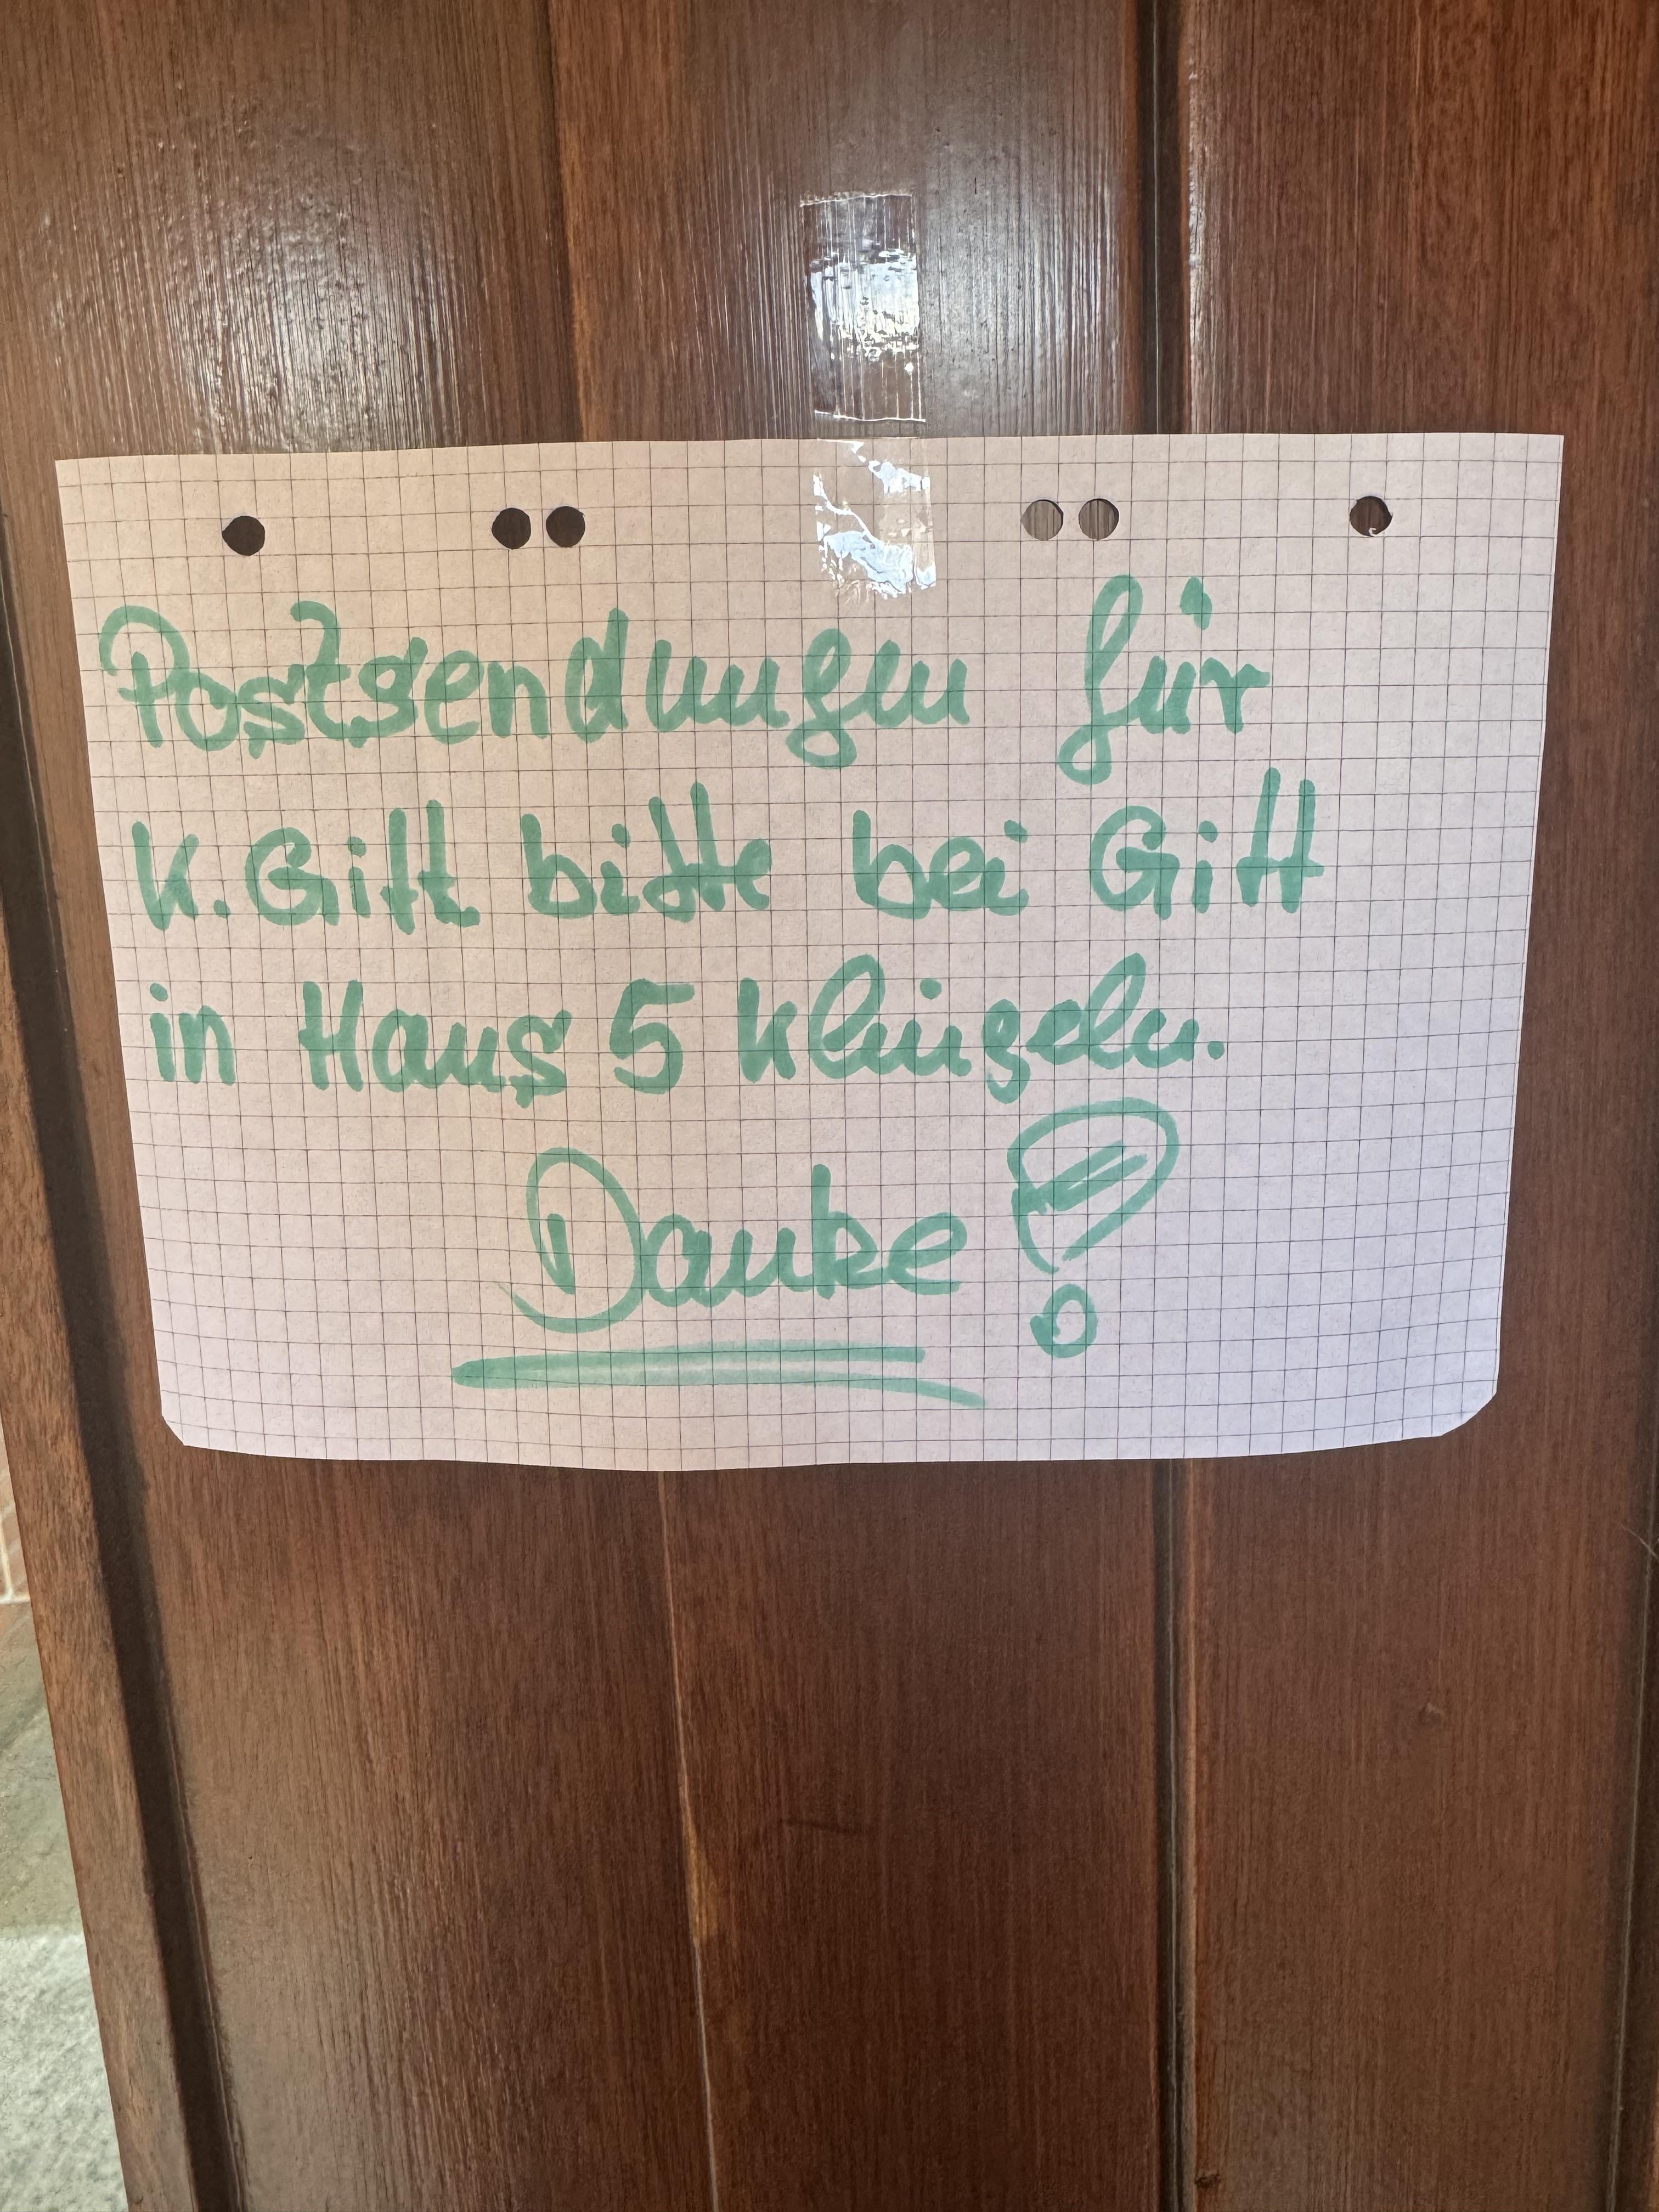 Postsendungen für
K. Gift bitte bei Gift
in Haus 5 klingeln.
Danke!